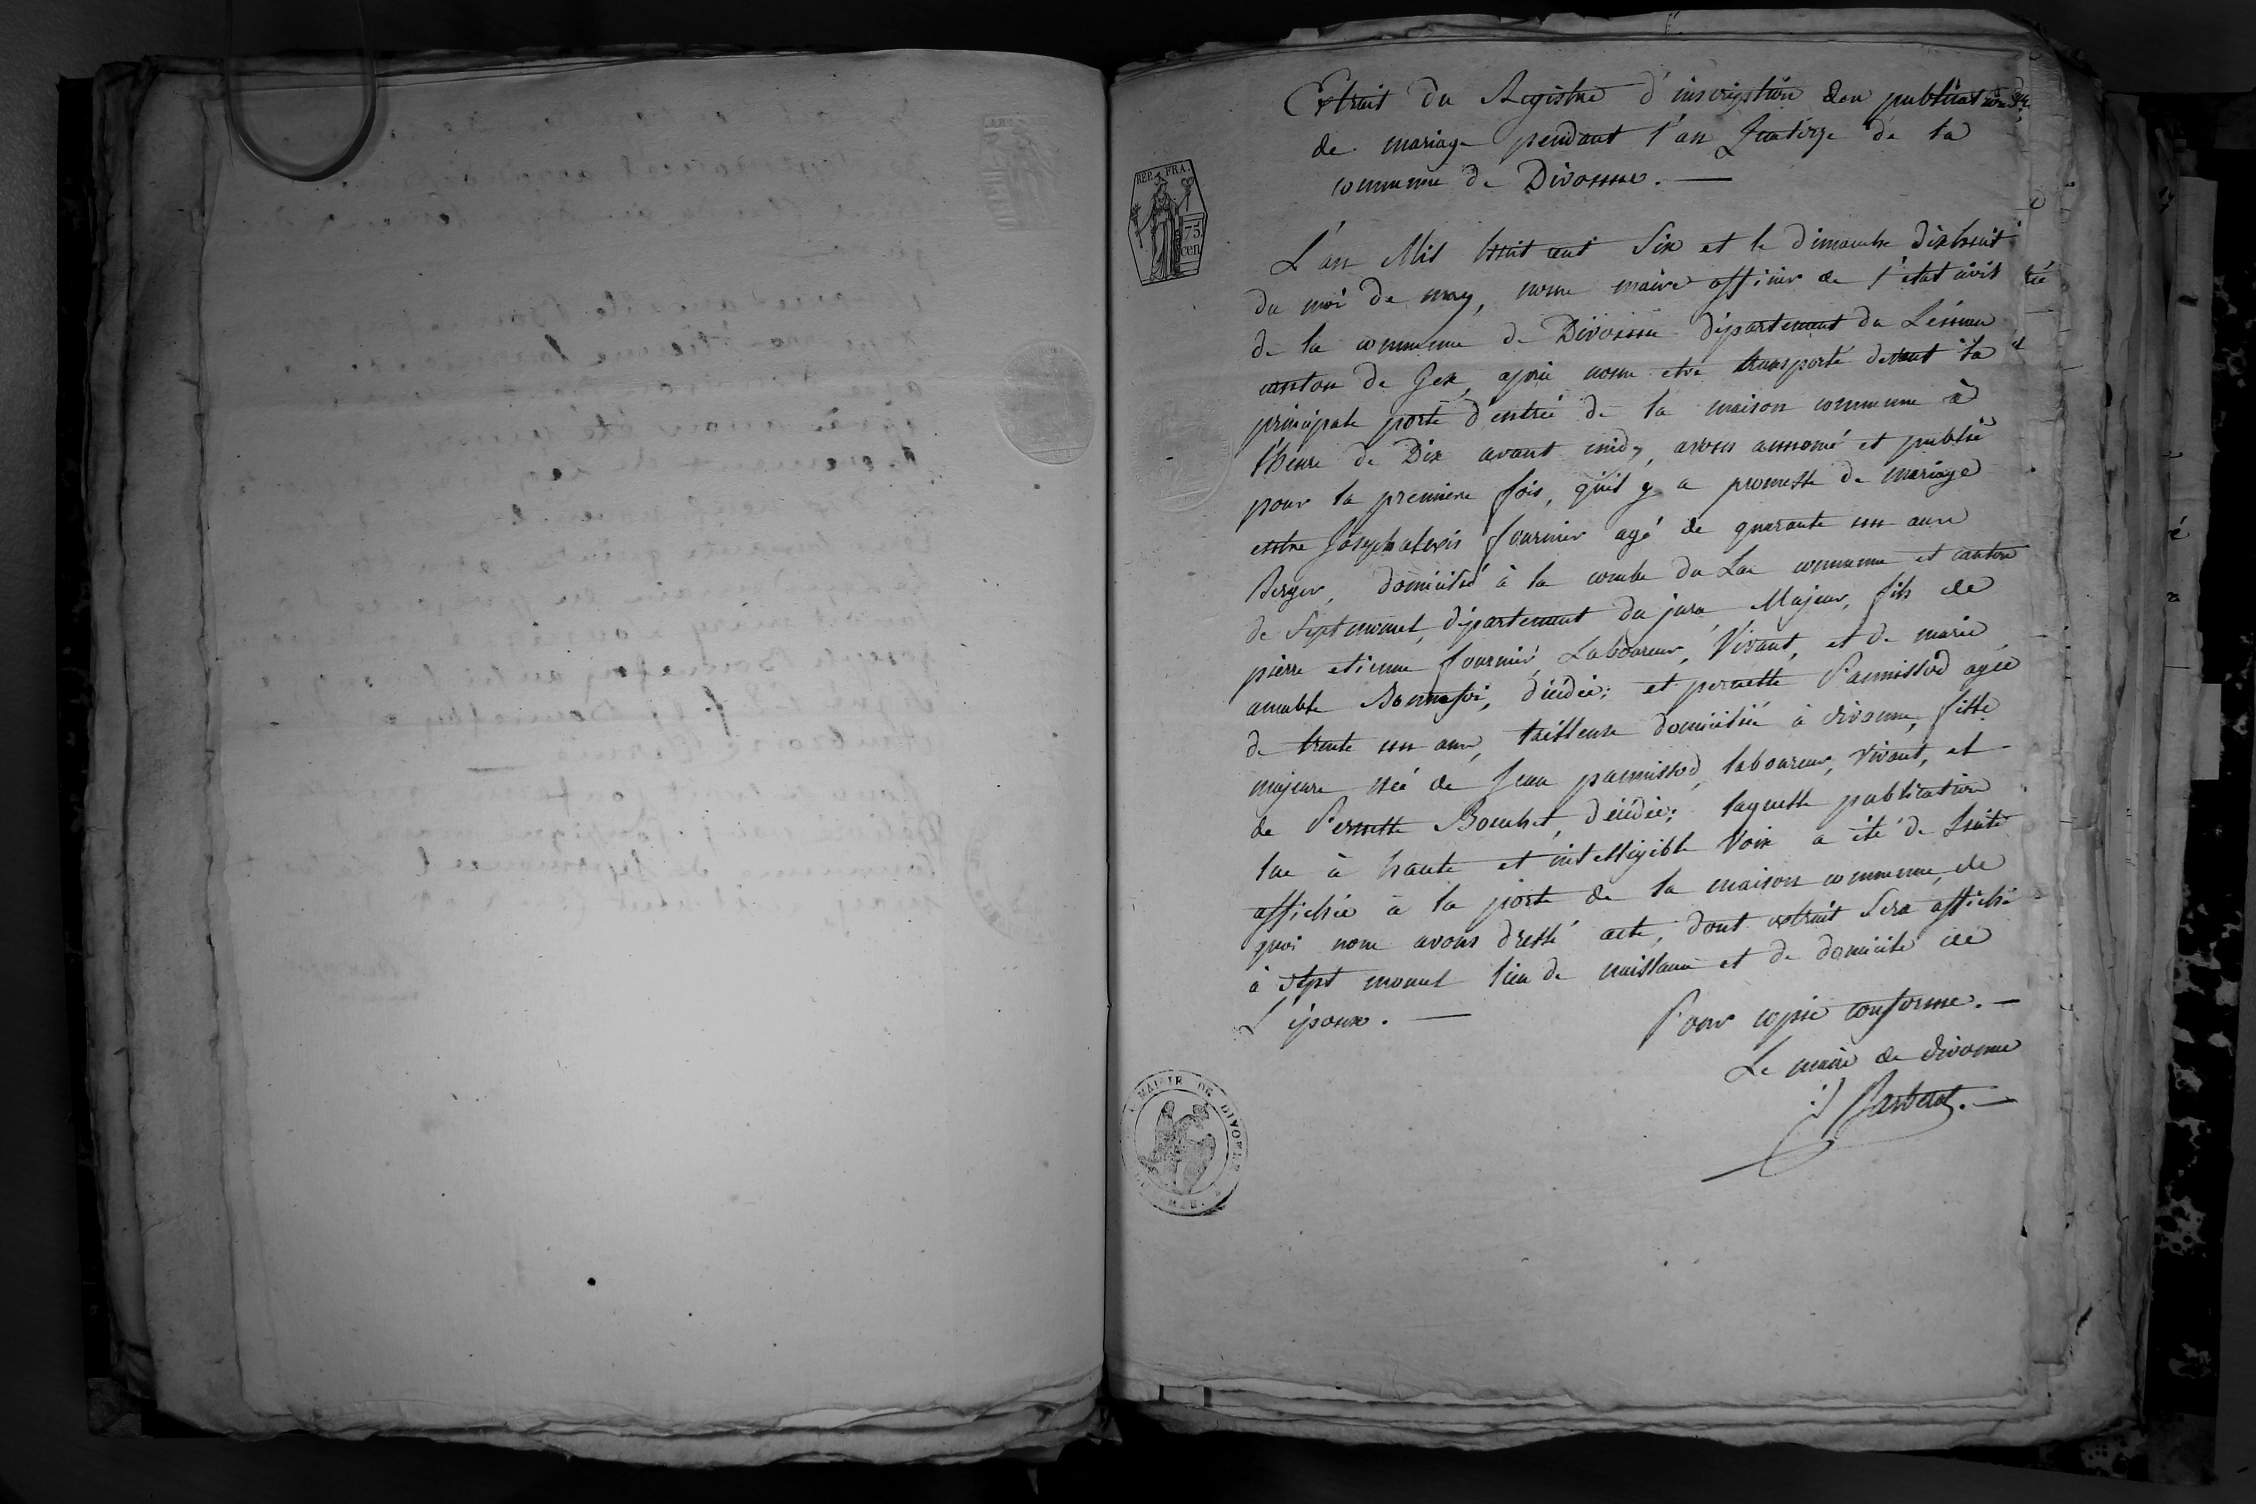 Extrait du Registre d'inscription des publications
de mariage pendant l'an Quatorze de la
commune de Divonne. —
REP. FRA.
75
cen
L'an Mil huit cent Six et le dimanche dixhuit
du moi de may, nous maire officier de l'etat civil
de la commune de Divonne département du Léman
canton de Gex, aprés nous etre transporté devant la
principale porte d'entrée de la maison commune à
l'heure de Dix avant midy, avons annoncé et publié
pour la premiere fois, qu'il y a promesse de mariage
entre Joseph alexis fournier agé de quarante un ans
Berger, domicilié à la combe du Lac commune et canton
de Septmoncel, département du jura, Majeur, fils de
pierre etienne fournier, Laboureur, Vivant, et de marie
amable Bonnefoi, décédée; et pernette Pannissod agée
de trente un ans, tailleuse domiciliée à divonne, fille
majeure née de Jean pannissod, laboureur, vivant, et
de Pernette Bouchet, décédée; laquelle publication
lue à haute et intelligible Voix a été de suite
affichée à la porte de la maison commune, de
quoi nous avons dressé acte, dont extrait sera affiché
à Sept moncel lieu de naissance et de domicile de
L'époux. —
Pour copie conforme. —
Le maire de divonne
Barberat. —
MAIRIE DE DIVONNE